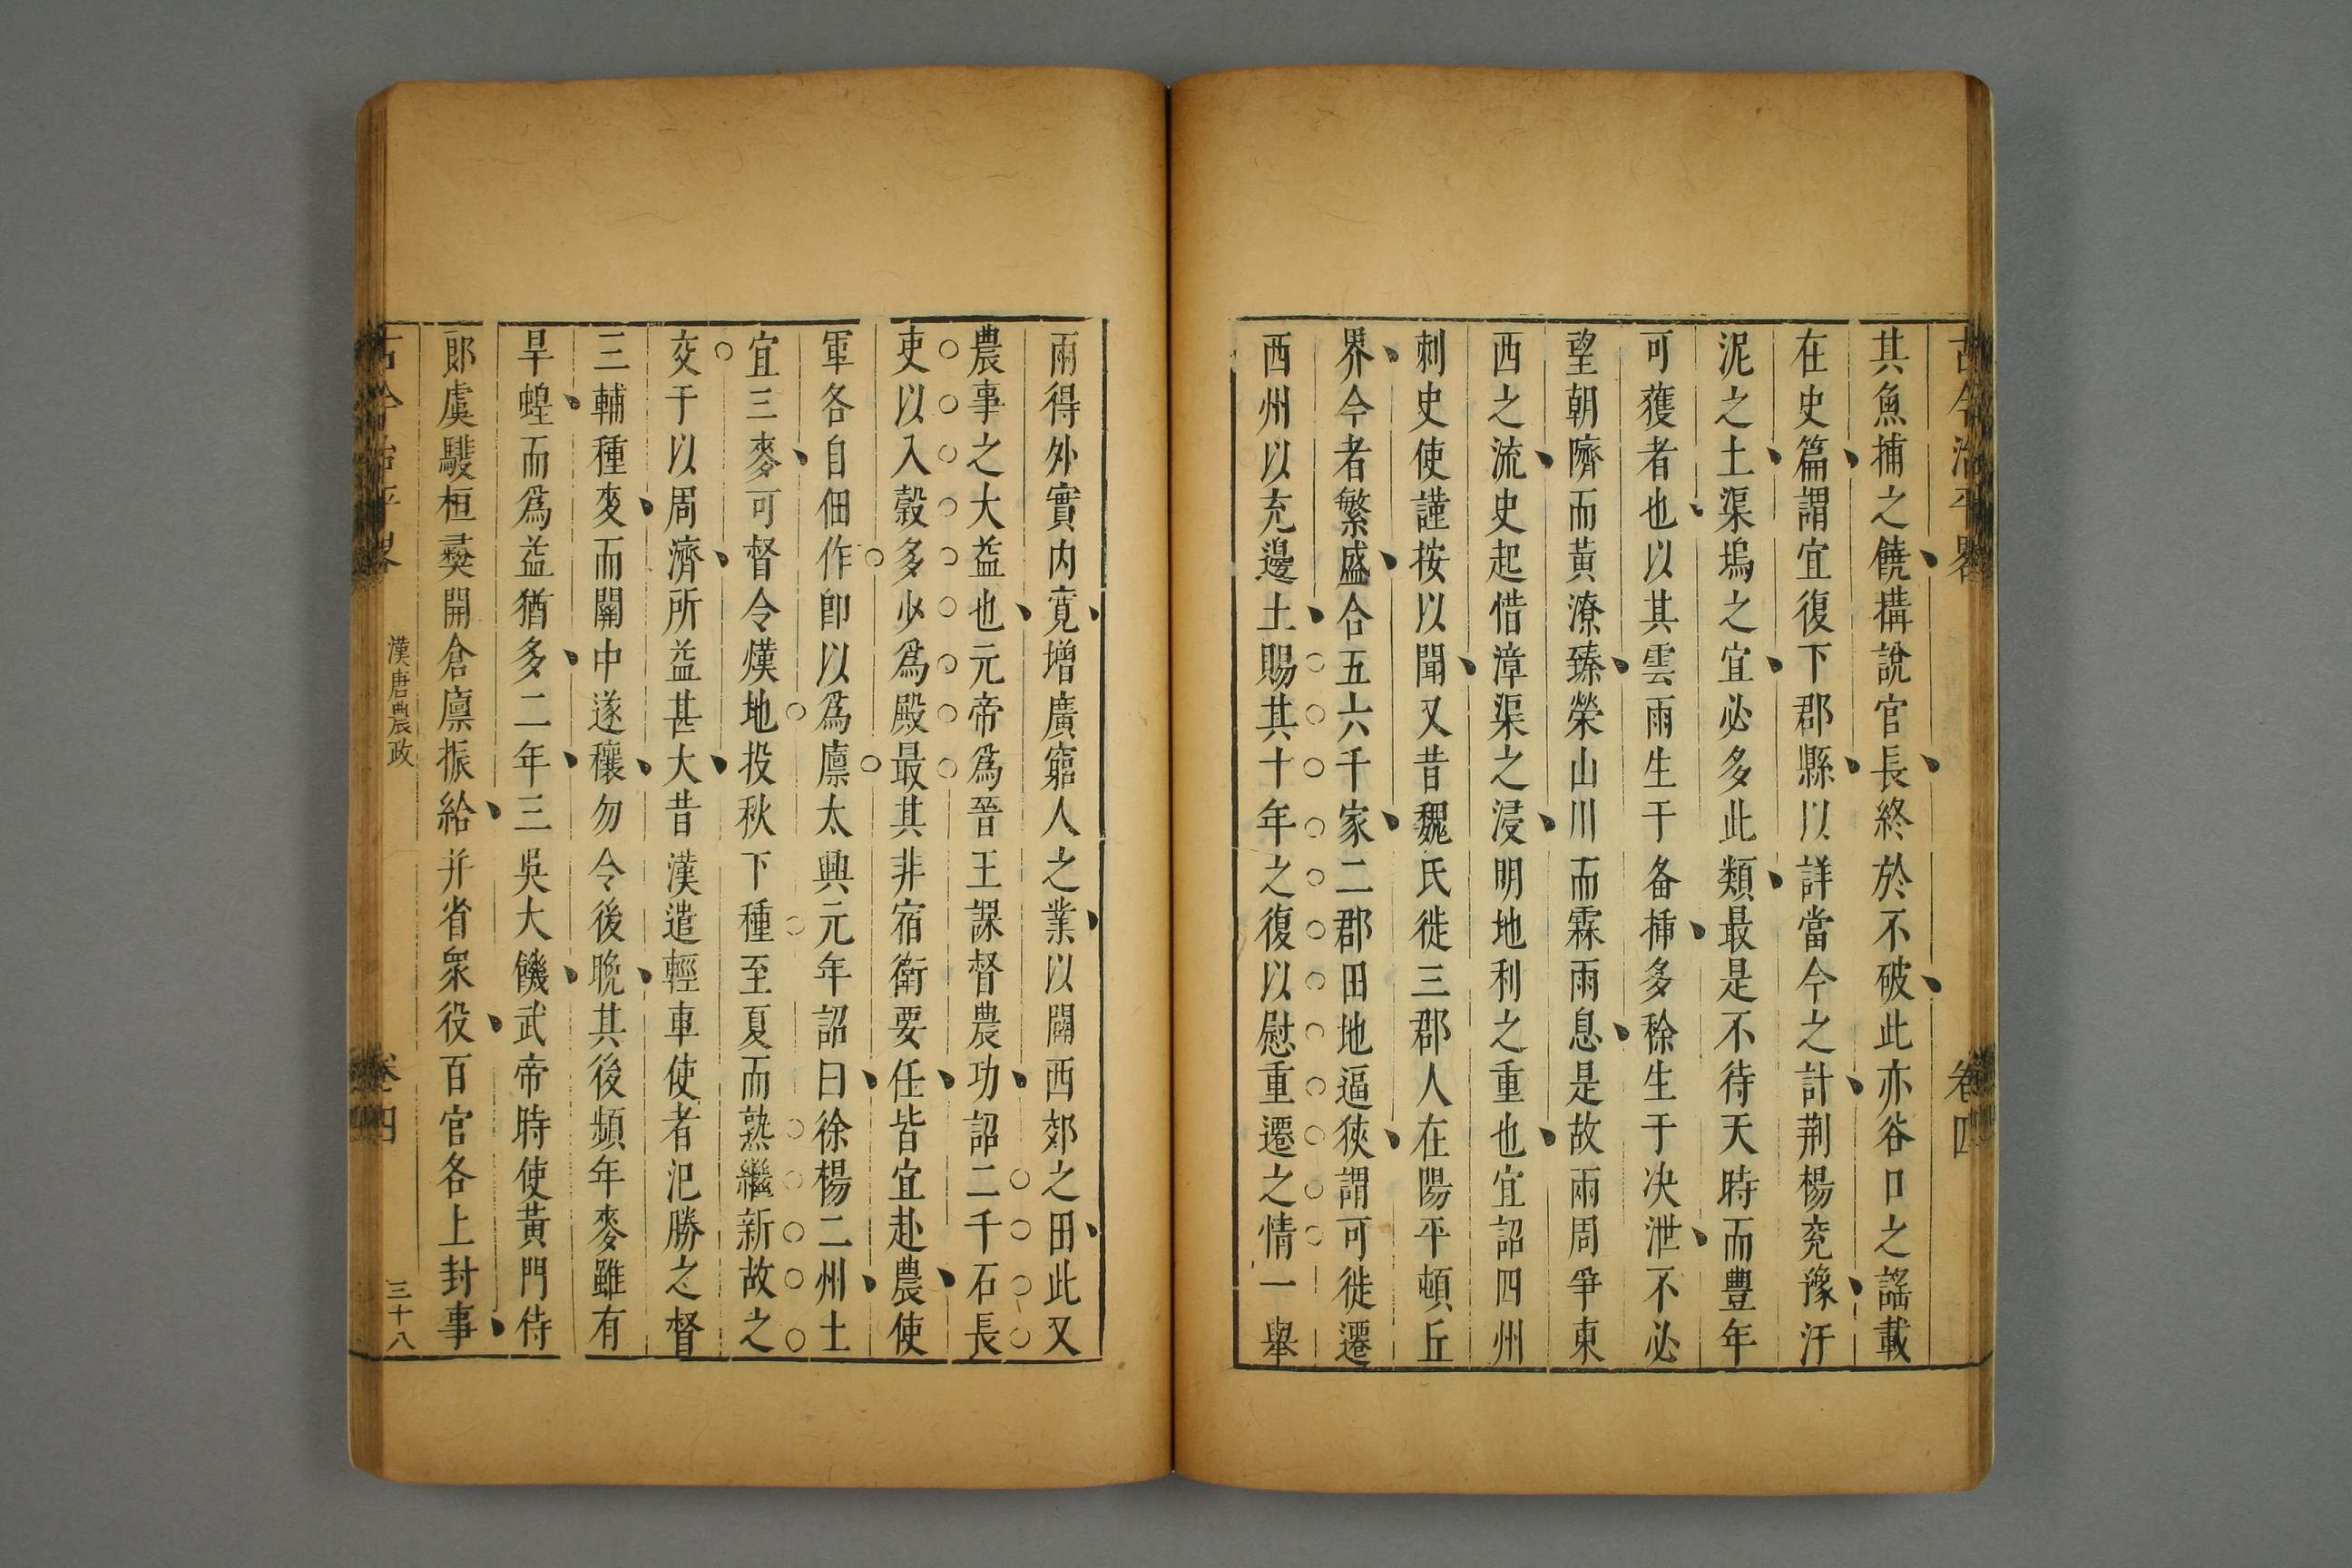 古今治平畧 卷四
其魚捕之饒構說官長終於不破此亦谷口之謠載
在史篇謂宜復下郡縣以詳當今之計荆楊兖豫汙
泥之土渠塢之宜必多此類最是不待天時而豐年
可獲者也以其雲雨生于畚挿多稌生于决泄不必
望朝隮而黃潦臻禜山川而霖雨息是故兩周爭東
西之流史起惜漳渠之浸明地利之重也宜詔四州
刺史使謹按以聞又昔魏氏徙三郡人在陽平頓丘
界今者繁盛合五六千家二郡田地逼狹謂可徙遷
西州以充邊土賜其十年之復以慰重遷之情一舉
兩得外實内寛增廣窮人之業以闢西郊之田此又
農事之大益也元帝爲晉王課督農功詔二千石長
吏以入穀多少爲殿最其非宿衛要任皆宜赴農使
軍各自佃作卽以爲廩太興元年詔曰徐楊二州土
宜三麥可督令熯地投秋下種至夏而熟繼新故之
交于以周濟所益甚大昔漢遣輕車使者氾勝之督
三輔種麥而關中遂穰勿令後晚其後頻年麥雖有
旱蝗而爲益猶多二年三吳大饑武帝時使黃門侍
郎虞𩦎桓彝開倉廩振給并省衆役百官各上封事
古今治平畧 漢唐農政 卷四 三十八